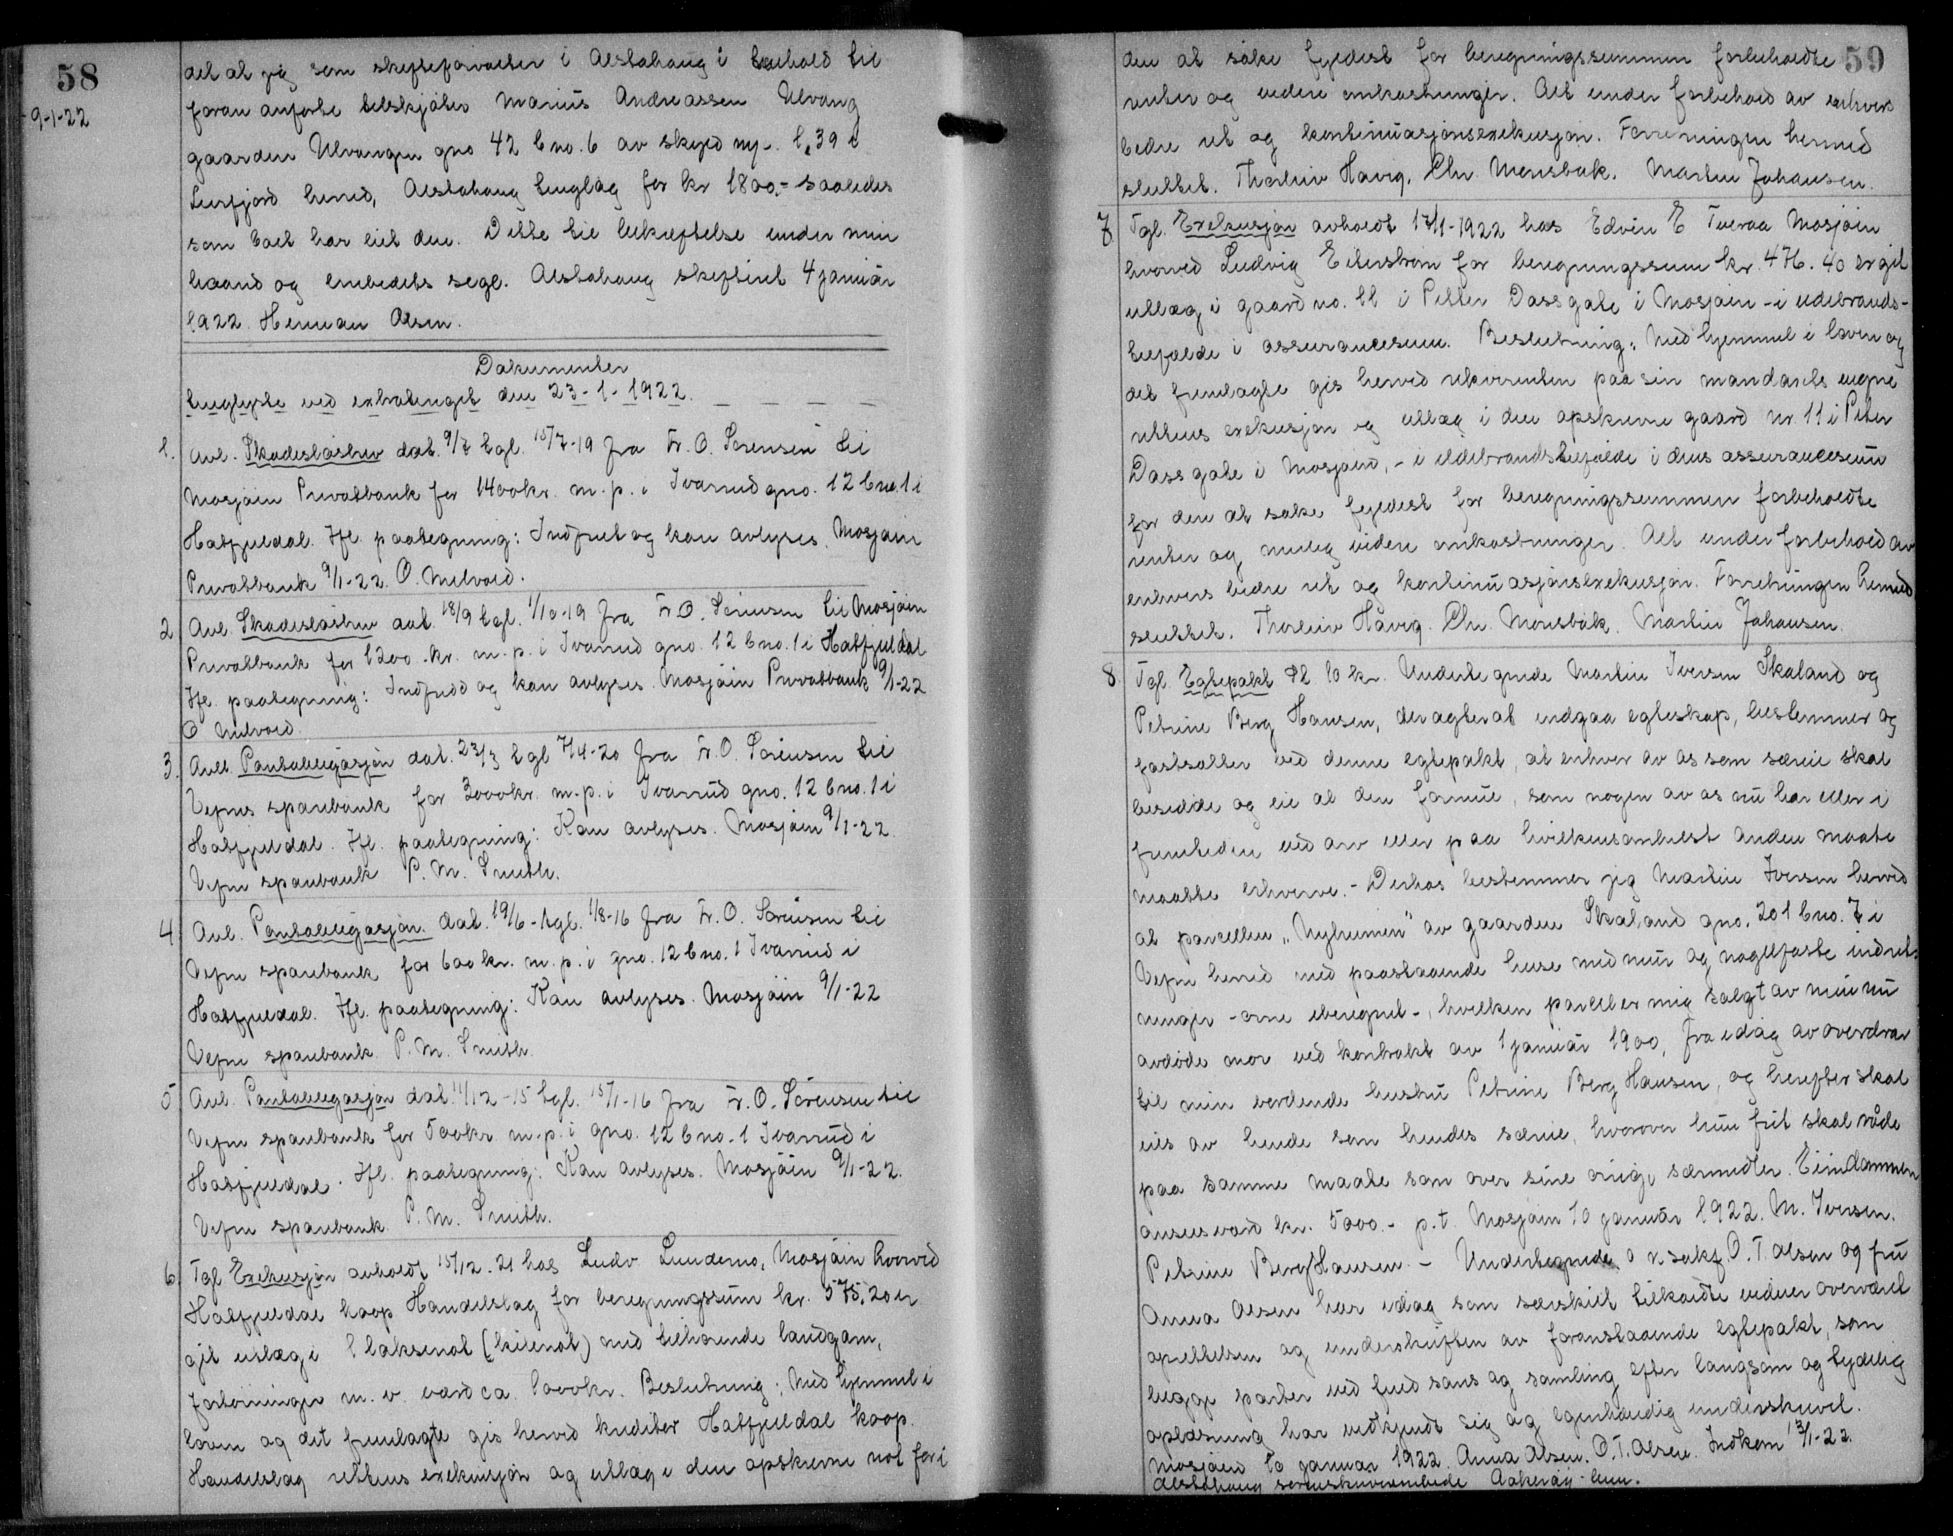 58
9-1-22
det at jeg som skifteforvalter i Alstahaug i henhold til
foran anførte tilskjøter Marius Andreassen Ulvang
gaarden Ulvangen gno 42 bno. 6 av skyld my-. 1,39 i
Leirfjord herred, Alstahaug tinglag for kr 1800,- saaledes
som boet har eiet den. Dette til bekræftelse under min
haand og embedets segl. Alstahaug skifteret 4 januar
1922. Herman Olsen.
Dokumenter
tinglyste ved extratinget den 23-1-1922.
1. Avl. Skadesløsbrev dat. 9/7 tgl. 15/7-19 fra Fr. O. Sørensen til
Mosjøen Privatbank for 1400kr. m.p. i Ivarrud gno. 12 bno. 1 i
Hatfjeldal. Ifl. paategning: Indfriet og kan avlyses. Mosjøen
Privatbank 9/1-22. O. Melvold.
2. Avl. Skadesløsbrev dat. 18/9 tgl. 1/10-19 fra Fr. O. Sørensen til Mosjøen
Privatbank for 1200.kr. m.p. i Ivarrud gno. 12 bno. 1 i Hatfjeldal
Ifl. paategning: Indfridd og kan avlyses. Mosjøen Privatbank 9/1-22
O Melvold.
3. Avl. Pantobligasjon dat. 23/3 tgl 7/4-20 fra Fr. O. Sørensen til
Vefsns sparebank for 3000kr. m.p. i Ivarrud gno. 12 bno. 1 i
Hatfjeldal. Ifl. paategning: Kan avlyses. Mosjøen 9/1-22.
Vefsn sparebank P. M. Smith.
4. Avl. Pantobligasjon. dat. 19/6-tgl. 1/8-16 fra Fr. O. Sørensen til
Vefsn sparebank for 600kr. m.p. i gno. 12 bno. 1 Ivarrud i
Hatfjeldal. Ifl. paategning: Kan avlyses. Mosjøen 9/1-22
Vefsn sparebank. P. M. Smith.
5 Avl. Pantobligasjon dat. 11/12-15 tgl. 15/1-16 fra Fr. O. Sørensen til
Vefsn sparebank for 500kr m.p. i gno. 12 bno. 1 Ivarrud i
Hatfjeldal. Ifl. paategning: Kan avlyses. Mosjøen 9/1-22.
Vefsn sparebank. P. M. Smith.
6. Tgl Exekusjon avholdt 15/12.21 hos Ludv Lundemo, Mosjøen hvorved
Hatfjeldal koop Handelslag for beregningssum kr. 575,20 er
git utlæg i 1 laksenot (kilenot) med tilhørende landgarn,
fortøininger m. v. værd ca. 1000kr. Beslutning: Med hjemmel i
loven og det fremlagte gis herved kreditor Hatfjeldal koop.
Handelslag rettens exekusjon og utlæg i den opskrevne not for i
59
den at søke fyldest for beregningssummen forbeholdte
renter og videre omkostninger. Alt under forbehold av enhvers
bedre ret og kontinuasjonsexekusjon. Forretningen hermed
sluttet. Thorleiv Havig. Chr. Monsbak. Martin Johansen.
7. Tgl. Exekusjon avholdt 17/1-1922 hos Edvin E Tveraa Mosjøen
hvorved Ludvig Eiterstrøm for beregningssum kr. 476.40 er git
utlæg i gaard no. 11 i Petter Dassgate i Mosjøen - i ildebrands-
tilfælde i assurancesum. Beslutning: Med hjemmel i loven og
det fremlagte gis herved rekvirenten paa sin mandants vegne
rettens exekusjon og utlæg i den opskrevne gaard nr. 11 i Peter
Dass gate i Mosjøen, - i ildebrandstilfælde i dens assurancesum
for den at søke fyldest for beregningssummen forbeholdte
renter og mulig videre omkostninger. Alt under forbehold av
enhvers bedre ret og kontinuasjonsexekusjon. Forretningen hermed
sluttet. Thorleiv Havig. Chr. Monsbak. Martin Johansen.
8. Tgl. Egtepakt St 10 kr. Undertegnede Martin Iversen Skaland og
Petrine Berg Hansen, der agter at indgaa egteskap, bestemmer og
fastsætter ved denne egtepakt, at enhver av os som særeie skal
besidde og eie al den formue, som nogen av os nu har eller i
fremtiden ved arv eller paa hvilkensomhelst anden maate
maatte erhverve. - Derhos bestemmer jeg Martin Iversen herved
at parcellen "Nyheimen" av gaarden Skaland gno. 201 bno. 7 i
Vefsn herred med paastaaende huse med mur og nagelfaste indret-
ninger - ovne iberegnet -, hvilken parcel er mig solgt av min nu
avdøde mor ved kontrakt av 1 januar 1900, fra idag av overdrar
til min vordende hustru Petrine Berg Hansen, og herefter skal
eies av hende som hendes særeie, hvorover hun frit skal råde
paa samme maate som over sine øvrige særmidler. Eiendommen
ansees værd kr. 5000.- p.t. Mosjøen 10 januar 1922. M. Iversen.
Petrine Berg Hansen. - Undertegnede o.r.sakf. O. T. Olsen og fru
Anna Olsen har idag som særskilt tilkaldte vidner overværet
oprettelsen og underskriften av foranstaaende egtepakt, som
begge parter ved fuld sans og samling efter langsom og tydelig
oplæsning har vedkjendt sig og egenhændig underskrevet.
Mosjøen 10 januar 1922. Anna Olsen. O. T. Olsen. Indkom 13/1-22.
Alstahaug sorenskriverembede